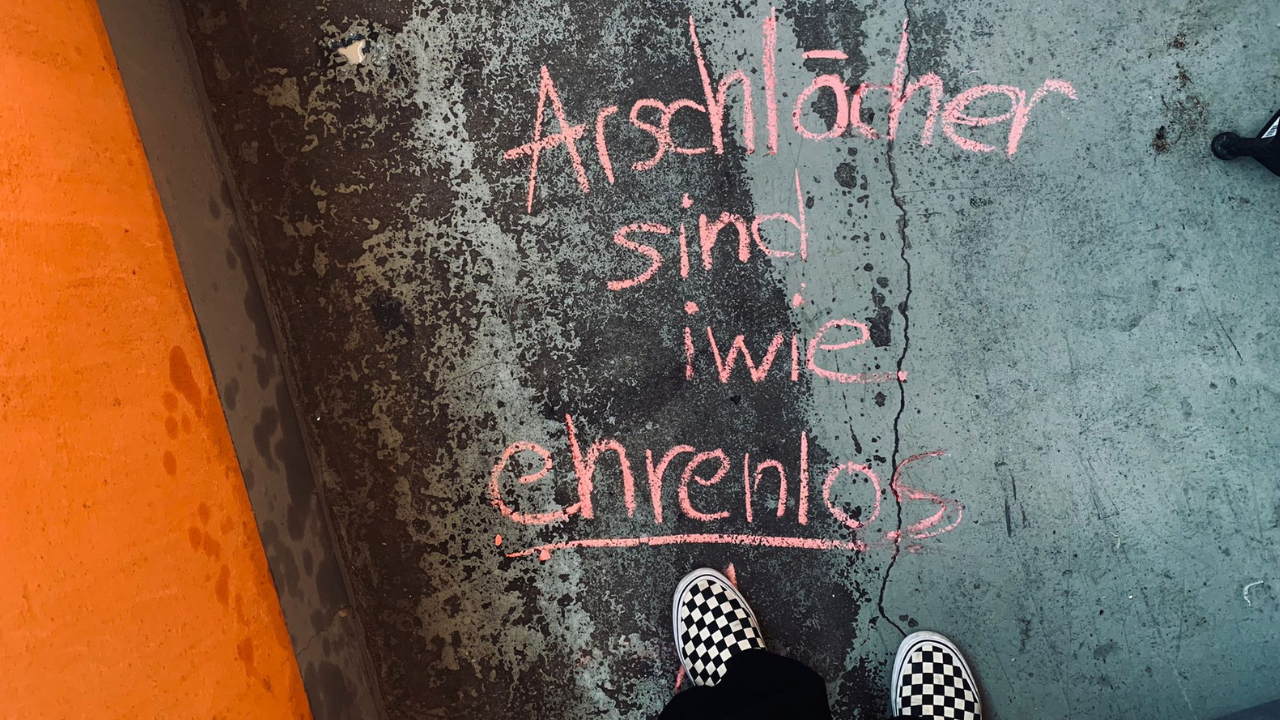 Arschlōcher
sind
iwie
ehrenlos